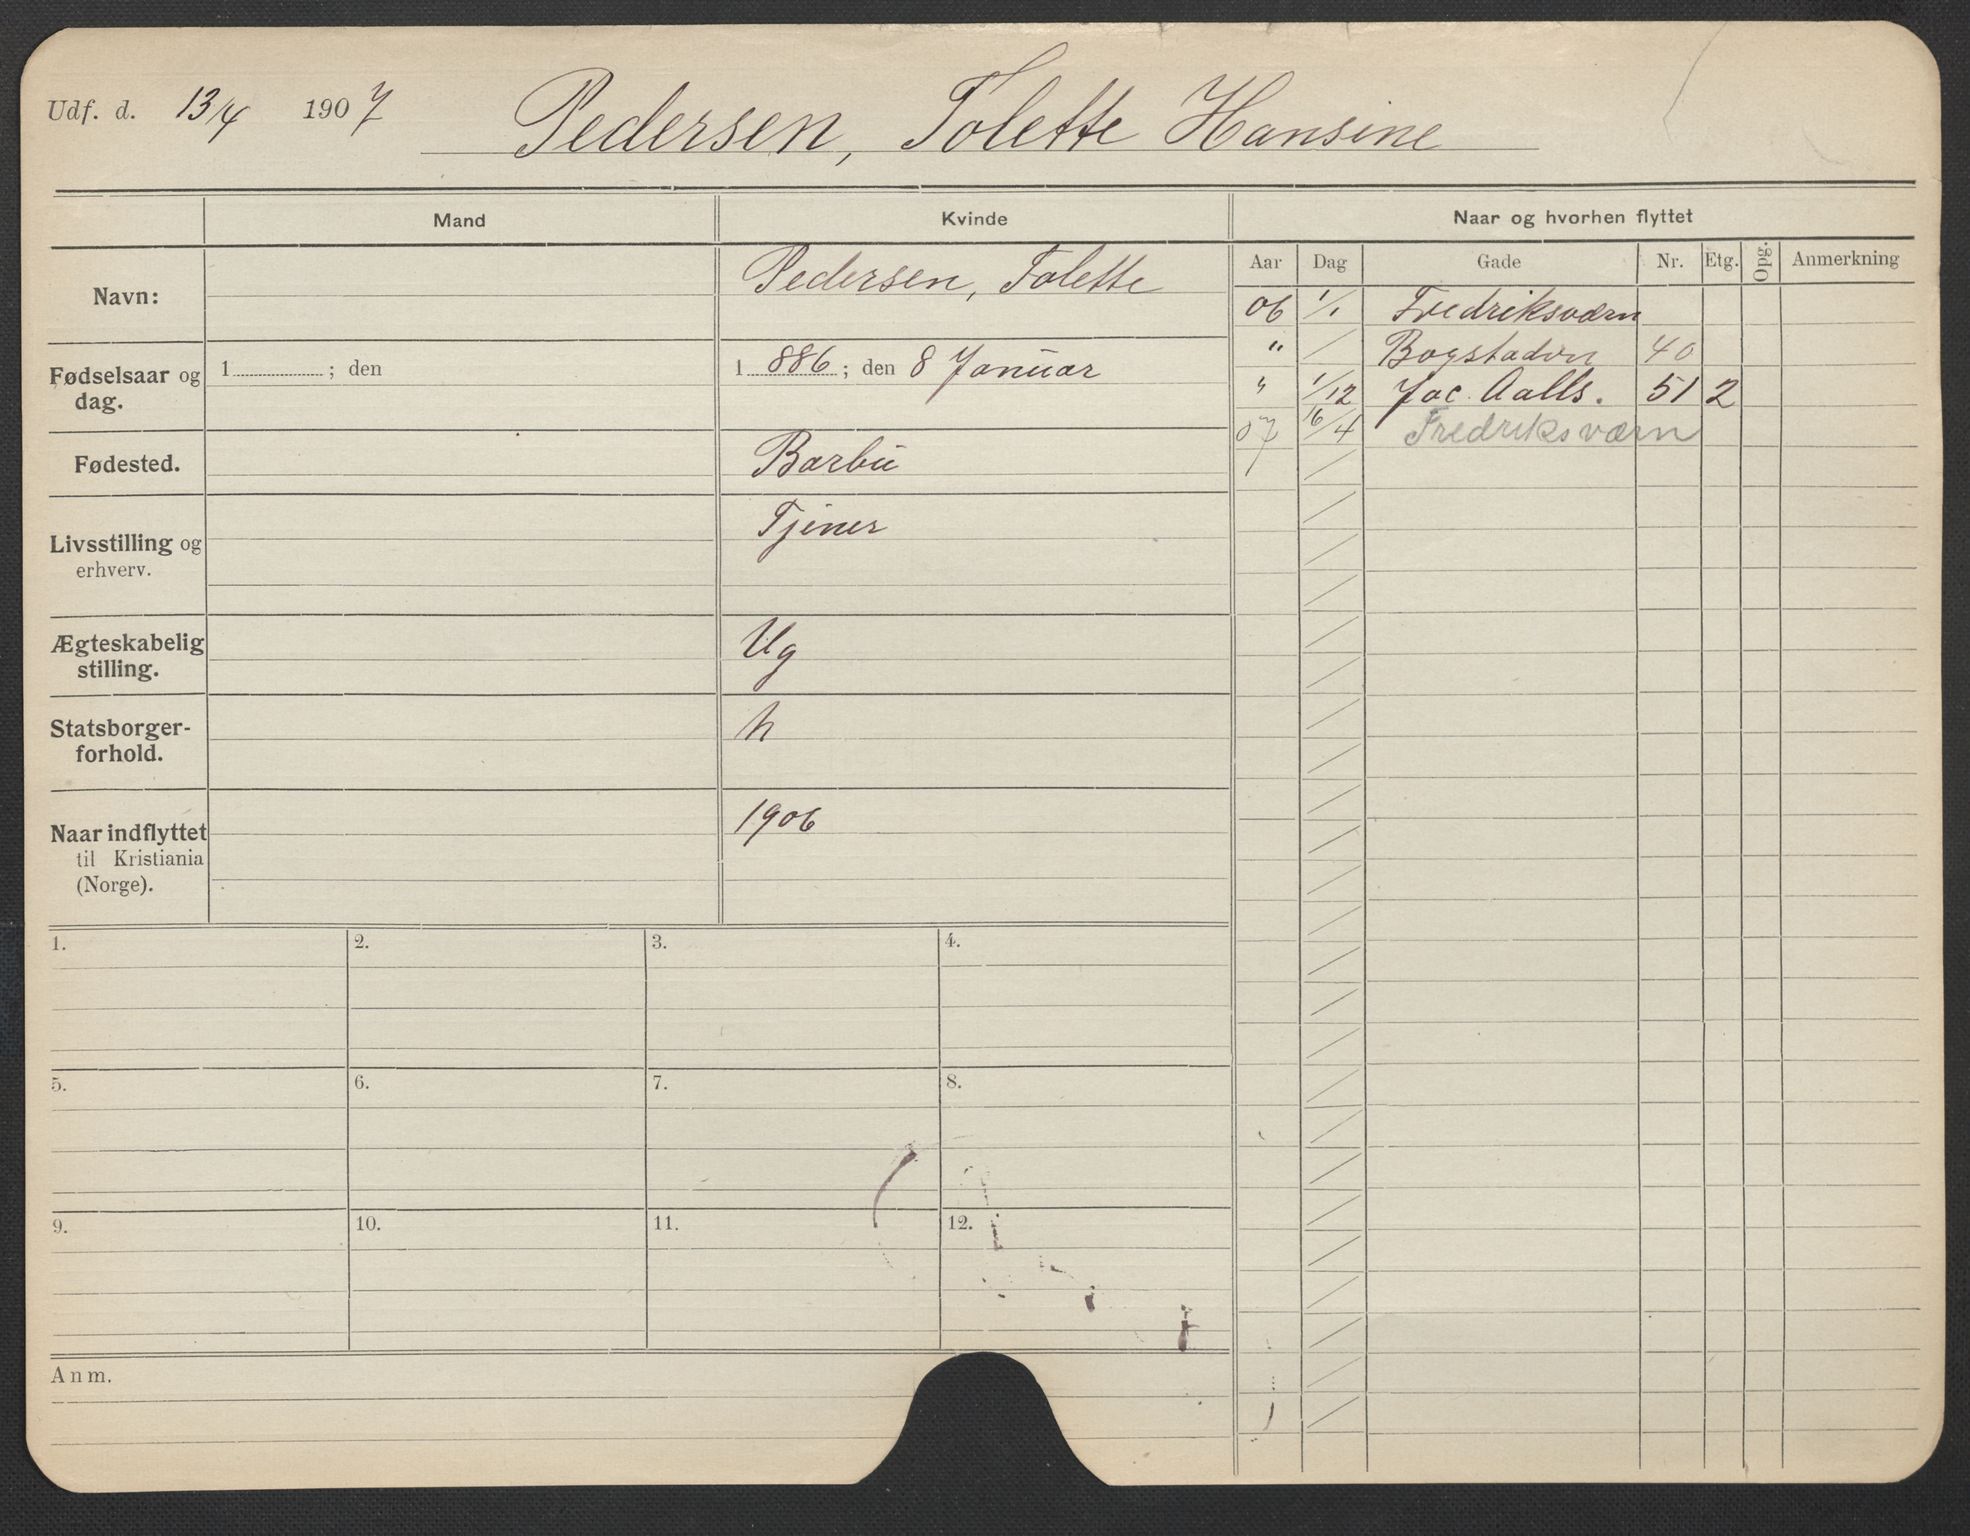 Udf. d. 13/4 1907 Pedersen, Tolette Hansine
Mand Kvinde Naar og hvorhen flyttet
Aar Dag Gade Nr. Etg. Opg. Anmerkning
Navn: Pedersen, Tolette
06 1/1 Fredriksværn
" Bogstadvn 40
" 1/12 Jac. Aalls. 51 2
07 16/4 Fredriksværn
Fødselsaar og dag. 1 ; den 1 886 ; den 8 Januar
Fødested. Barbu
Livsstilling og erhverv. Tjener
Ægteskabelig stilling. Ug
Statsborger-
forhold. n
Naar indflyttet
til Kristiania
(Norge). 1906
1. 2. 3. 4.
5. 6. 7. 8.
9. 10. 11. 12.
Anm.